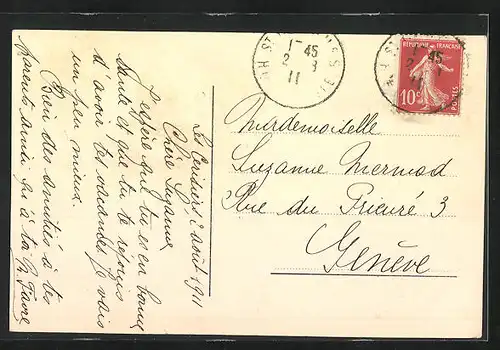 2 août 1911
Chère Suzanne
J'espère que tu es en bonne
santé et que tu te réjouis
d'avoir tes vacances je vais
un peu mieux.
Bien des amitiés à tes
parents ainsi qu'à toi
Favre
1- 45
2 - 8
11
45
RÉPUBLIQUE FRANÇAISE
10c
POSTES
Mademoiselle
Suzanne Mermod
Rue du Prieuré 3
Genève